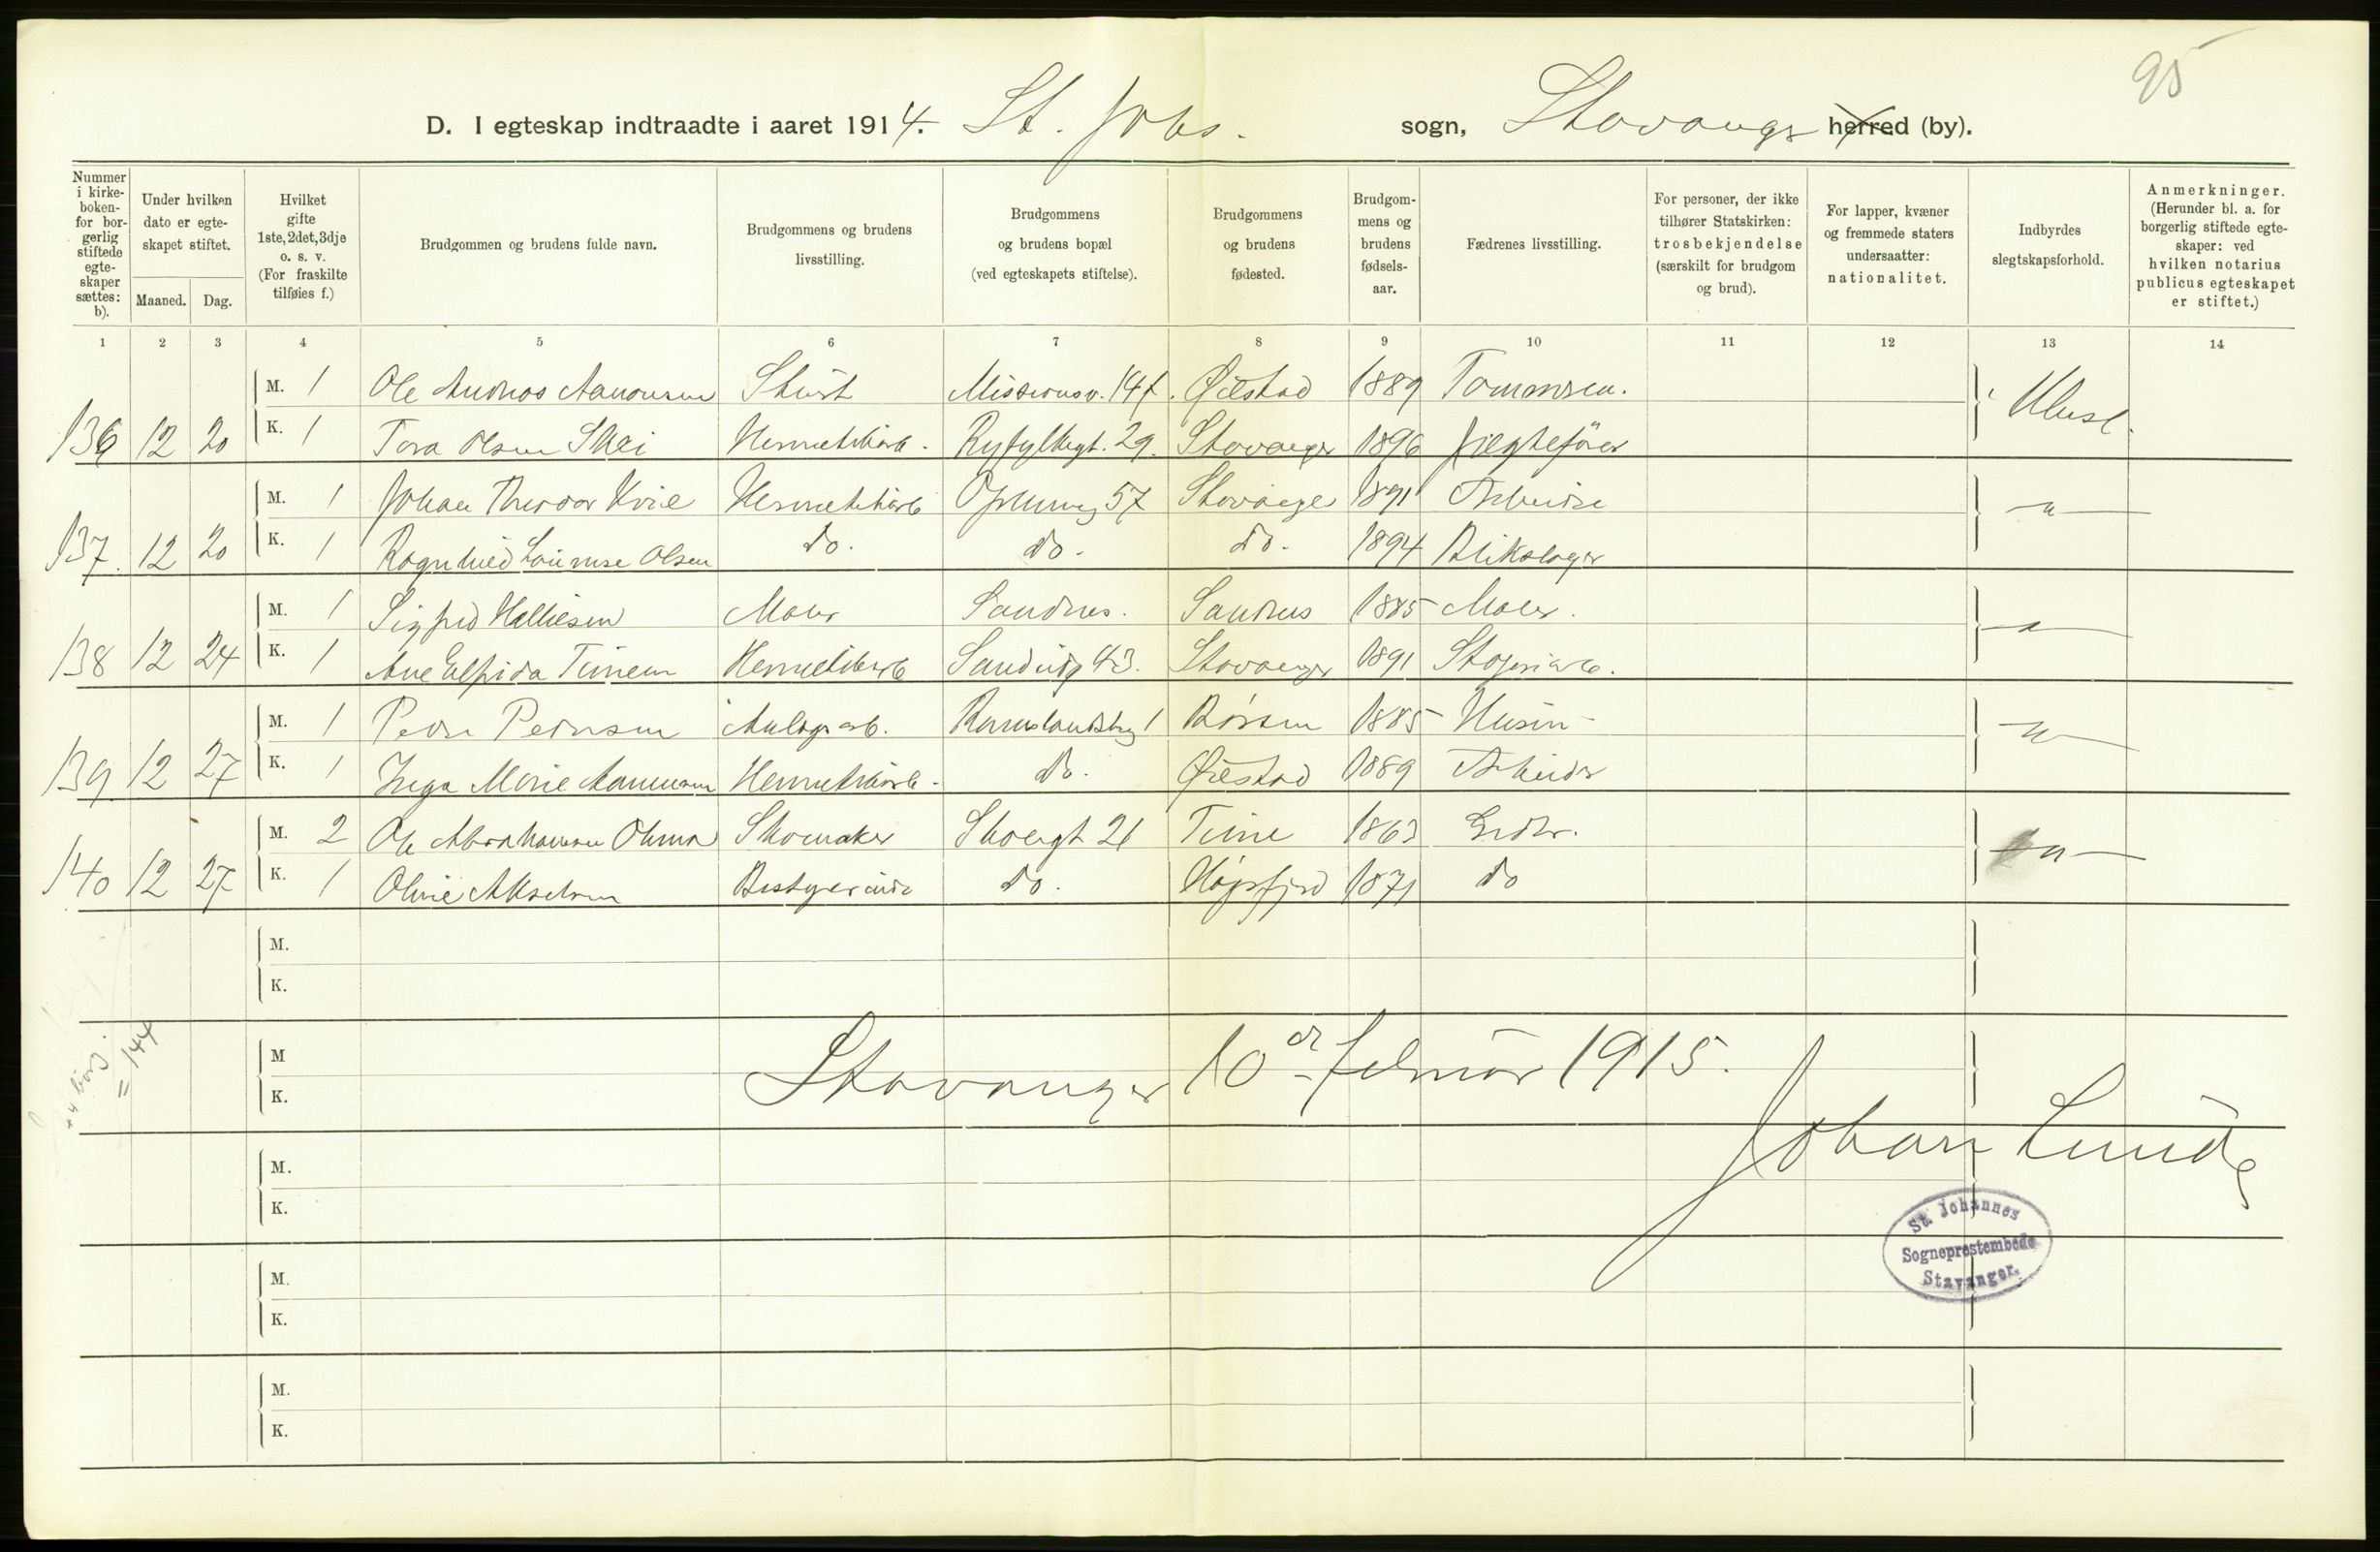 95
D. I egteskap indtraadte i aaret 1914. St. Johs. sogn, Stavanger herred (by).
Nummer i kirke-boken- for bor-gerlig stiftede egte-skaper sættes: b).
Under hvilken dato er egte-skapet stiftet.
Maaned. Dag.
Hvilket gifte 1ste, 2det, 3dje o. s. v. (For fraskilte tilføies f.)
Brudgommen og brudens fulde navn.
Brudgommens og brudens livsstilling.
Brudgommens og brudens bopæl (ved egteskapets stiftelse).
Brudgommens og brudens fødested.
Brudgom-mens og brudens fødsels-aar.
Fædrenes livsstilling.
For personer, der ikke tilhører Statskirken: trosbekjendelse (særskilt for brudgom og brud).
For lapper, kvæner og fremmede staters undersaatter: nationalitet.
Indbyrdes slegtskapsforhold.
Anmerkninger. (Herunder bl. a. for borgerlig stiftede egte-skaper: ved hvilken notarius publicus egteskapet er stiftet.)
1 2 3 4 5 6 7 8 9 10 11 12 13 14
M. 1 Ole Andreas Aanonsen Missionsv. 14 f. Øiestad 1889 Tømmerm. Ubesl.
136 12 20 K. 1 Tora Olsen Skei Hermetikarb. Ryfylkegt. 29. Stavanger 1896 Jægtefører
M. 1 Johan Theodor Kvie Hermetikarb 57 Stavanger 1891 Arbeider — " —
137. 12 20 K. 1 Ragnhild Lovise Olsen do. do. do. 1894 Blikslager
M. 1 Sigfred Helliesen Maler Sandnes. Sandnes 1885 Maler. — " —
138 12 24 K. 1 Ane Elfrida Timein Hermetikarb 43. Stavanger 1891 Støperiarb.
M. 1 Peder Pedersen Anlægsarb. 1 Børsen 1885 Husm. — " —
139 12 27 K. 1 Inga Marie Aanonsen Hermetikarb. do. Øiestad 1889 Arbeider
M. 2 Ole Abrahamsen Skomaker Skoergt 21 Time 1863 Grdbr. — " —
140 12 27 K. 1 Oline Akselsen Bestyrerinde do. Høgsfjord 1871 do
M.
K.
+ 4 borg.
= 144
M
K.
Stavanger 10de februar 1915.
Johan Lunde
M.
K.
St. Johannes
Sogneprestembede
Stavanger.
M.
K.
M.
K.